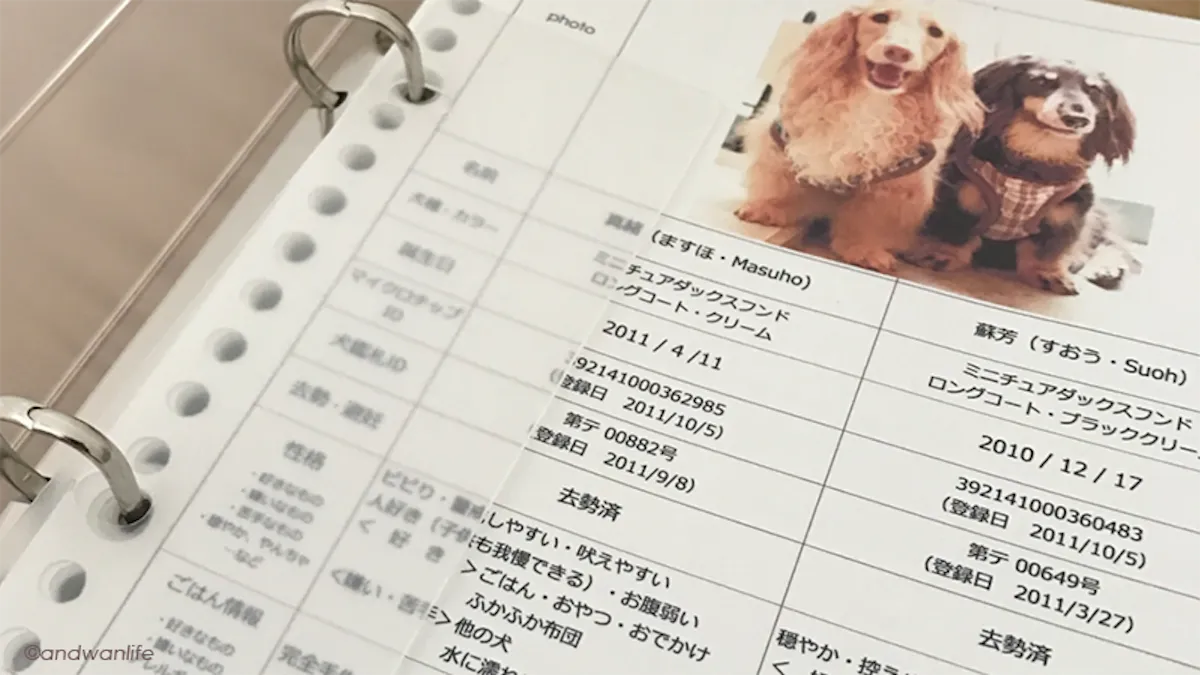 photo
名前
(ますほ・Masuho)
蘇芳 (すおう・Suoh)
犬種・カラー
ミニチュアダックスフンド
ロングコート・クリーム
ミニチュアダックスフンド
ロングコート・ブラッククリー
誕生日
2011 / 4 /11
2010 / 12 / 17
マイクロチップ
ID
392141000362985
登録日 2011/10/5)
392141000360483
(登録日 2011/10/5)
犬鑑札ID
第テ 00882号
登録日 2011/9/8)
第テ 00649号
(登録日 2011/3/27)
去勢・避妊
去勢済
去勢済
性格
・好きなもの
・嫌いなもの
・苦手なもの
・穏やか、やんちゃ
…など
ビビり・
しやすい・吠えやすい
人好き(子供
も我慢できる)・お腹弱い
< 好 き
>ごはん・おやつ・おでかけ
ふかふか布団
<嫌い・苦手>他の犬
水に濡れ
穏やか・控え
ごはん情報
・好きなもの
・嫌いなもの
完全手
©andwanlife